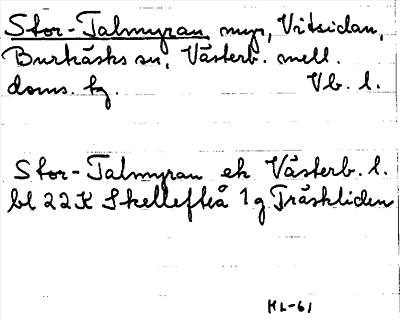 Stor-Talmyran myr, Vitsidan,
Burträsks sn, Västerb. mell.
doms. tg. Vb. l.
Stor-Talmyran ek Västerb. l.
bl 22K Skellefteå 1g Träskliden
HL-61